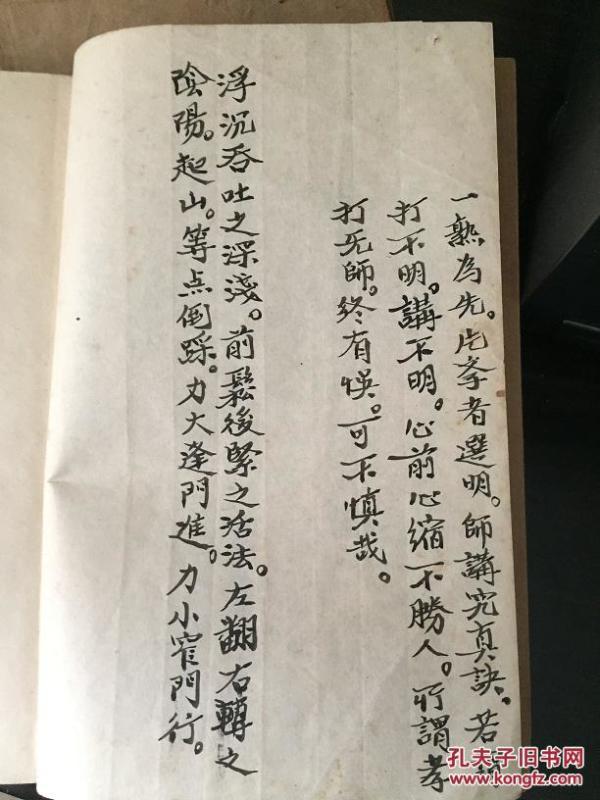 一熟為先。凡孝者選明。師講究真訣。若
打不明。講不明。心前心縮不勝人。所謂孝
打死師。終有悞。可不慎哉。
浮沉吞吐之深淺。前鬆後緊之活法。左翻右轉之
陰陽。起山。等点倒踩。力大逢門進。力小窄門行。
孔夫子旧书网
www.kongfz.com